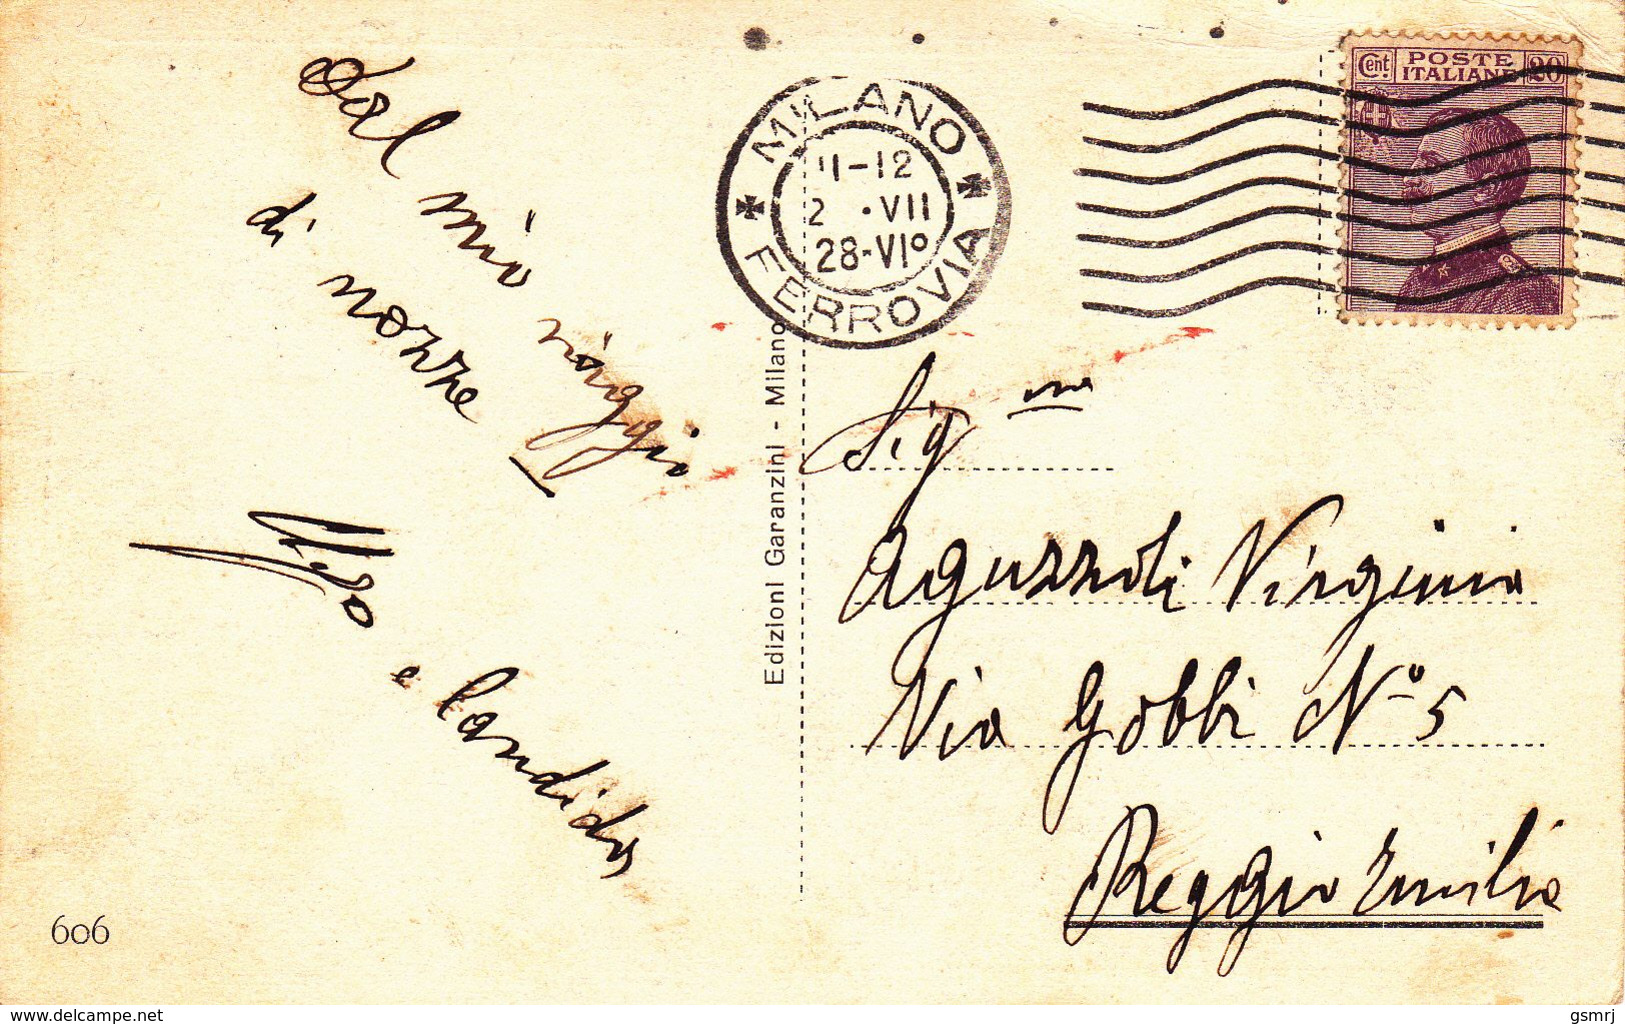 Dal mio viaggio
di nozze
Aldo
e Candida
606
Edizioni Garanzini - Milano
MILANO
11-12
2 .VII
28-VI°
FERROVIA
Cent. POSTE ITALIANE 20
Sig na
Aguzzoli Virginia
Via Gobbi N° 5
Reggio Emilia
www.delcampe.net
gsmrj